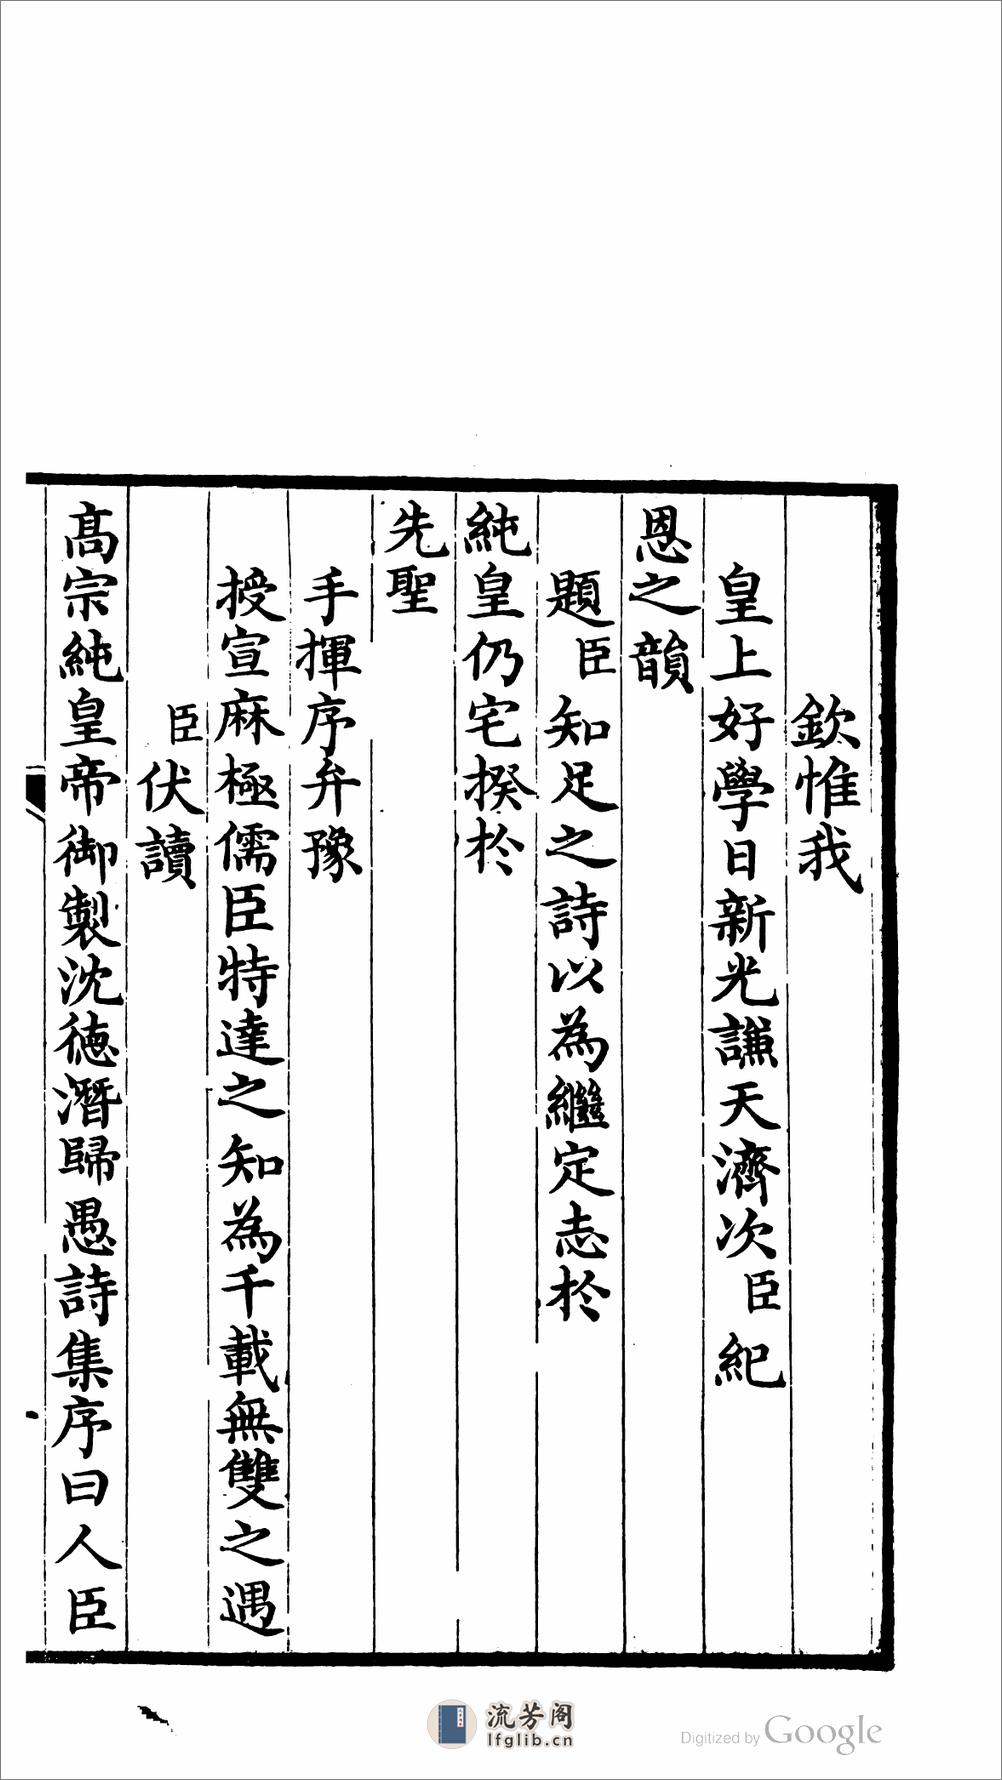 欽惟我
皇上好學日新光謙天濟次臣紀
恩之韻
題臣知足之詩以為繼定志於
純皇仍宅揆於
先聖
手揮序弁豫
授宣麻極儒臣特達之知為千載無雙之遇
臣伏讀
髙宗純皇帝御製沈徳潛歸愚詩集序曰人臣
流芳阁
lfglib.cn
Digitized by Google